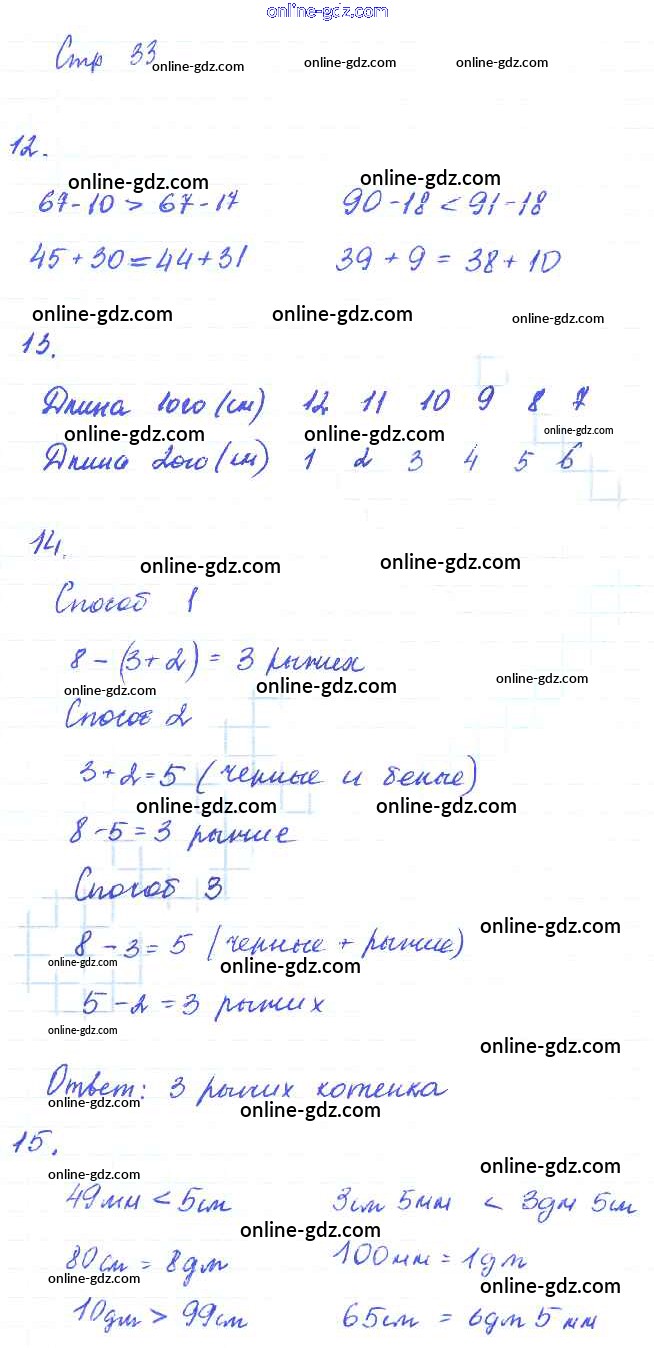 online-gdz.com
Стр 33 online-gdz.com online-gdz.com online-gdz.com
12.
online-gdz.com online-gdz.com
67-10 > 67-17 90-18 < 91-18
45+30=44+31 39+9=38+10
online-gdz.com online-gdz.com online-gdz.com
13.
Длина 1ого (см) 12 11 10 9 8 7
online-gdz.com online-gdz.com online-gdz.com
Длина 2ого (см) 1 2 3 4 5 6
14.
online-gdz.com online-gdz.com
Способ 1
8-(3+2)=3 рыжих
online-gdz.com online-gdz.com online-gdz.com
Способ 2
3+2=5 (черные и белые)
online-gdz.com online-gdz.com
8-5=3 рыжие
Способ 3
online-gdz.com
8-3=5 (черные + рыжие)
online-gdz.com online-gdz.com
5-2=3 рыжих
online-gdz.com
online-gdz.com
Ответ: 3 рыжих котенка
online-gdz.com online-gdz.com
15.
online-gdz.com online-gdz.com
49мм < 5см 3см 5мм < 3дм 5см
online-gdz.com
80см = 8дм 100мм = 1дм
online-gdz.com online-gdz.com
10дм > 99см 65см = 6дм 5мм